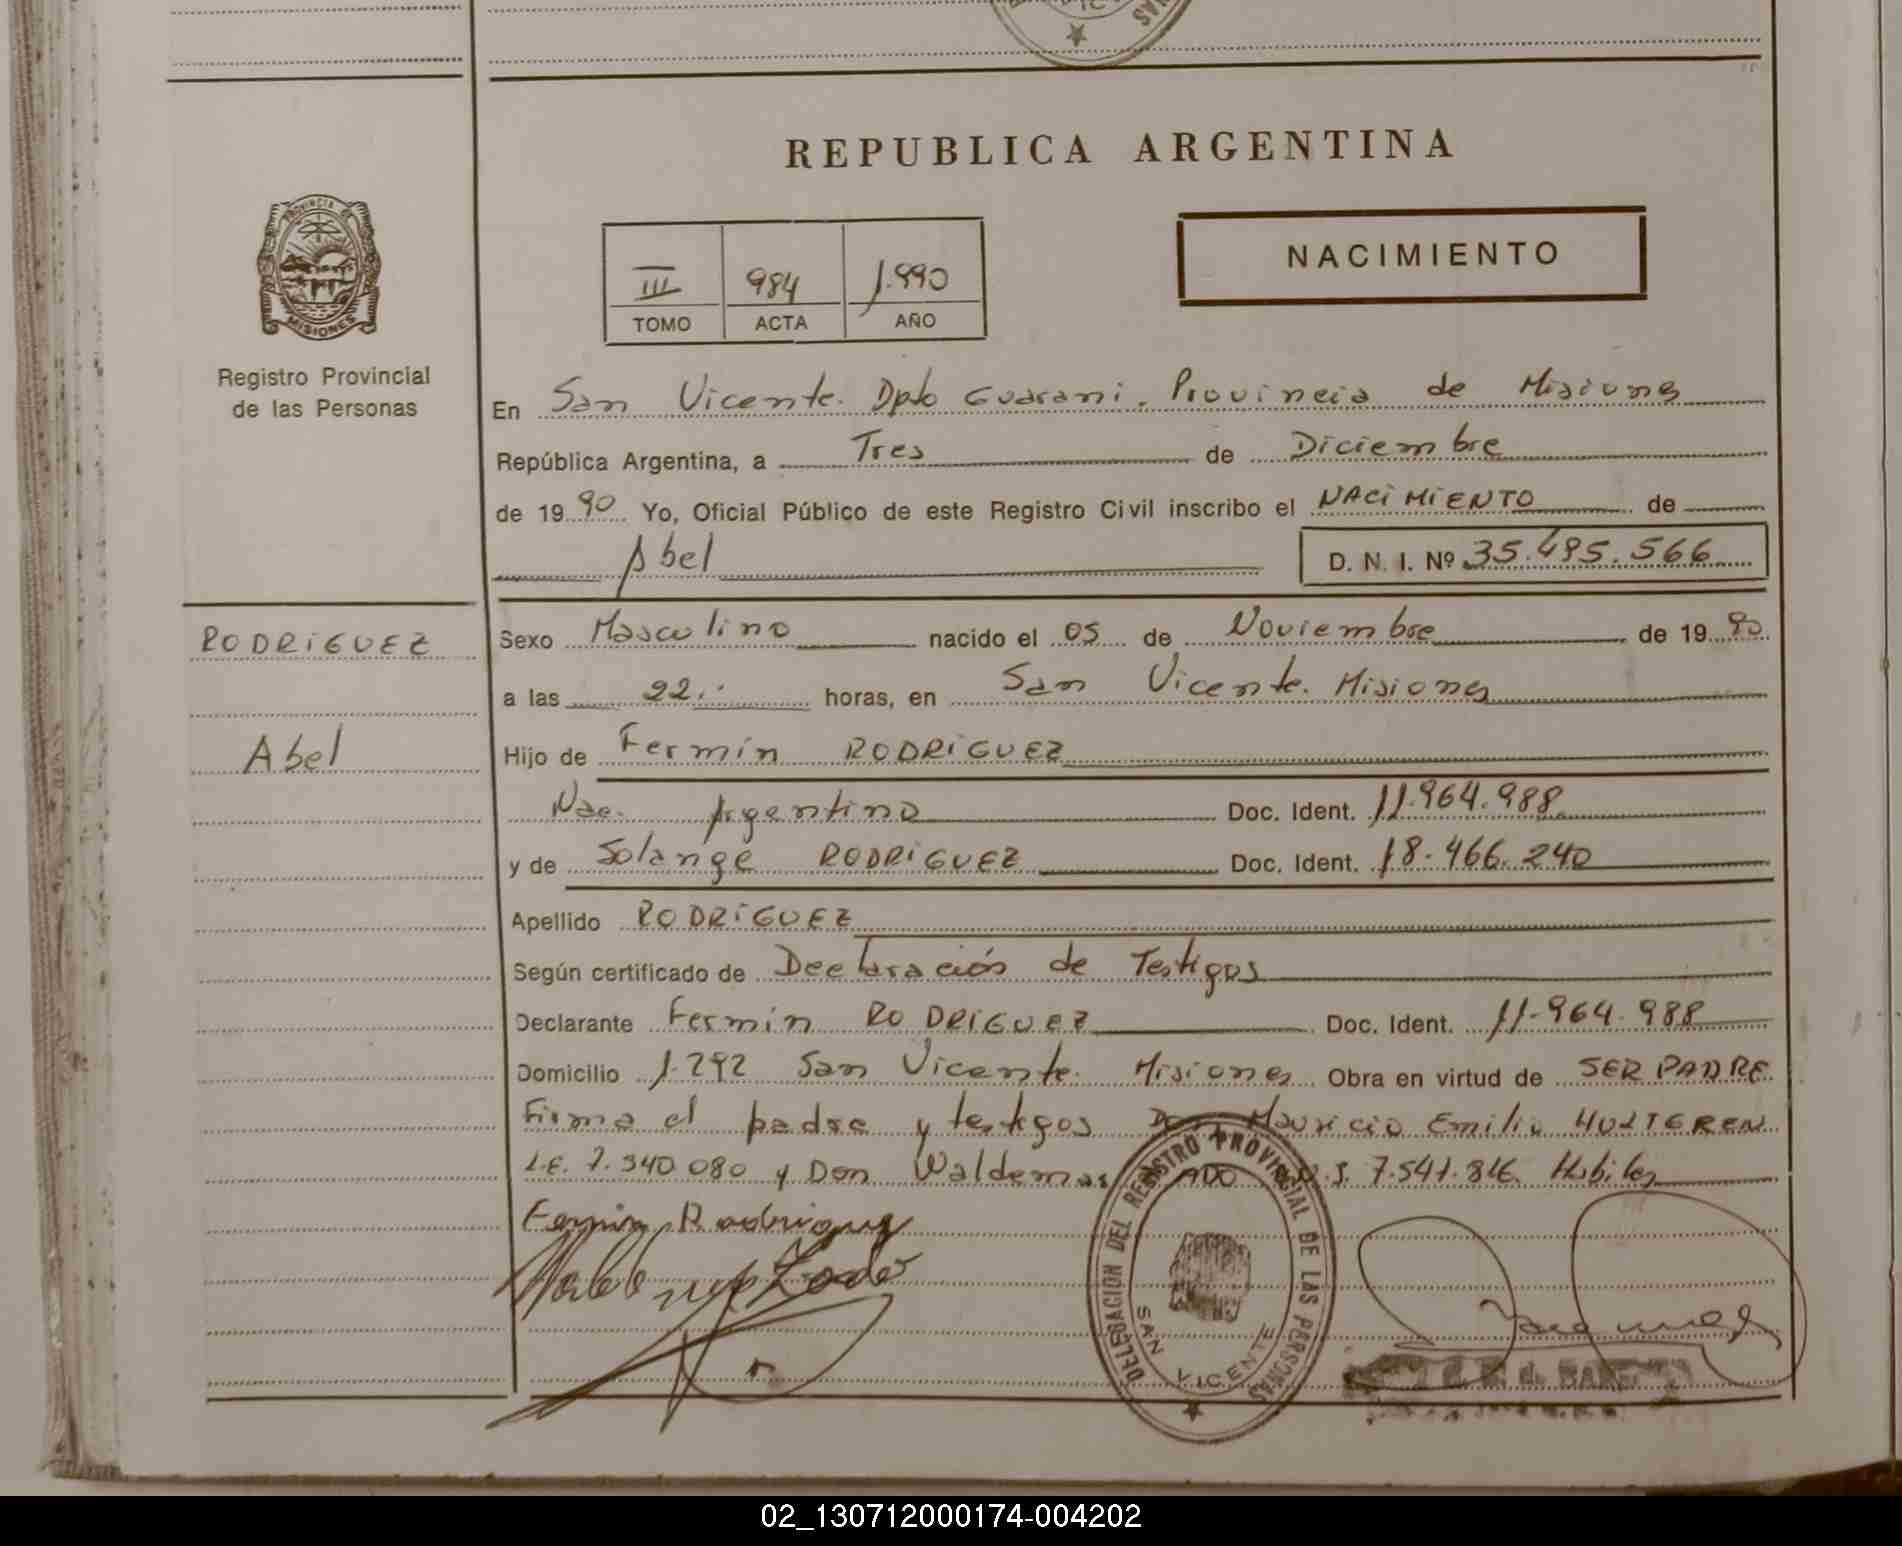 REPUBLICA ARGENTINA
PROVINCIA DE
MISIONES
Registro Provincial
de las Personas
NACIMIENTO
III 984 1.990
TOMO ACTA AÑO
En San Vicente. Dpto Guarani. Provincia de Misiones
República Argentina, a Tres de Diciembre
de 1990 Yo, Oficial Público de este Registro Civil inscribo el NACiMiENTO de
Abel D. N. I. Nº 35.495.566
RODRiGUEZ
Abel
Sexo Masculino nacido el 05 de Noviembre de 1990
a las 22.. horas, en San Vicente. Misiones
Hijo de Fermín RODRiGUEZ
Nac. Argentino Doc. Ident. 11.964.988
y de Solange RODRiGUEZ Doc. Ident. 18.466.240
Apellido RODRiGUEZ
Según certificado de Declaración de Testigos
Declarante Fermín RODRIGUEZ Doc. Ident. 11.964.988
Domicilio 1.292 San Vicente. Misiones Obra en virtud de SER PADRE
Firma el padre y testigos Don Mauricio Emilio
L.E. 7.540.080 y Don Waldemar 7.541.816 Habiles
Fermin Rodriguez
DELEGACION DEL REGISTRO PROVINCIAL DE LAS PERSONAS
SAN VICENTE
02_130712000174-004202